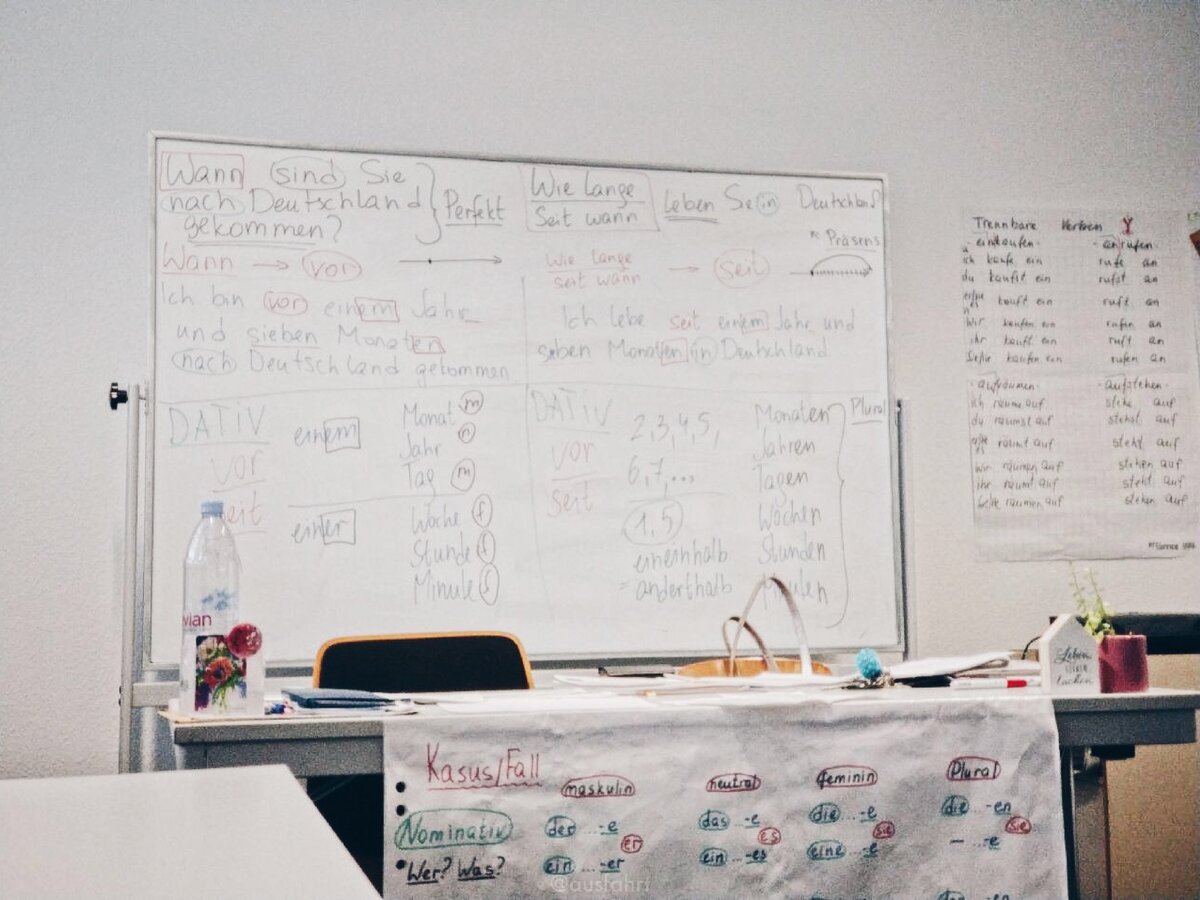 Wann sind Sie
nach Deutschland
gekommen?
Perfekt
Wann → vor
Ich bin vor einem Jahr
und sieben Monaten
nach Deutschland gekommen
Wie lange
Seit wann
Leben Sie in Deutschland
Präsens
Wie lange
seit wann
→ seit
Ich lebe seit einem Jahr und
sieben Monaten in Deutschland
DATiV
vor
seit
einem
Monat m
Jahr n
Tag m
einer
Woche f
Stunde f
Minute f
DATiV
vor
seit
2,3,4,5,
6,7,...
1,5
eineinhalb
= anderthalb
Monaten
Jahren
Tagen
Wochen
Stunden
Minuten
Plural
Trennbare Verben
einkaufen anrufen
ich kaufe ein rufe an
du kaufst ein rufst an
kauft ein ruft an
wir kaufen ein rufen an
ihr kauft ein ruft an
Sie/sie kaufen ein rufen an
aufräumen aufstehen
ich räume auf stehe auf
du räumst auf stehst auf
räumt auf steht auf
wir räumen auf stehen auf
ihr räumt auf steht auf
räumen auf stehen auf
vian
Leben
lachen
Kasus/Fall
maskulin neutral feminin Plural
Nominativ
der ...-e das ...-e die ...-e die ...-en
er es sie sie
Wer? Was?
ein ...-er ein ...-es eine ...-e – ...-e
@ausfahrt